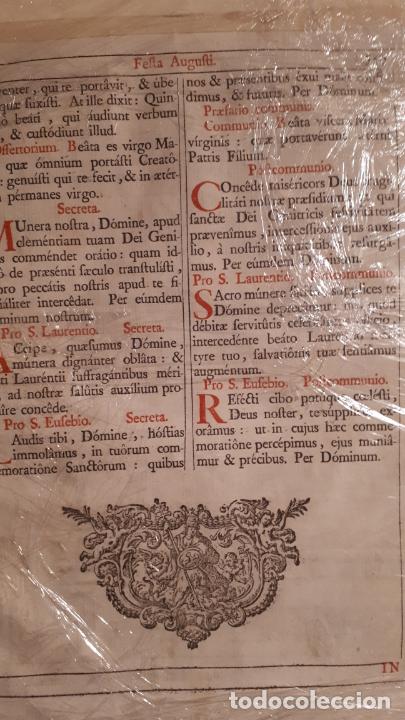 Festa Augusti.
venter, qui te portâvit, & úbe-
quæ suxísti. At ille dixit: Quin-
beáti, qui áudiunt verbum
& custódiunt illud.
Offertorium. Beáta es virgo Ma-
quæ ómnium portásti Creató-
genuísti qui te fecit, & in ætér-
pérmanes virgo.
Secreta.
MUnera nostra, Dómine, apud
cleméntiam tuam Dei Geni-
commendet orátio: quam id-
de præsénti sæculo transtulísti,
pro peccátis nostris apud te fi-
intercédat. Per eúmdem
Dóminum nostrum.
Pro S. Laurentio. Secreta.
ACcipe, quæsumus Dómine,
múnera dignánter obláta: &
Lauréntii suffragántibus méri-
ad nostræ salútis auxílium pro-
concéde.
Pro S. Eusebio. Secreta.
LAudis tibi, Dómine, hóstias
immolámus, in tuôrum com-
memoratióne Sanctórum: quibus
nos & præséntibus éxui
dimus, & futúris. Per Dóminum.
Præfatio communis.
Communio. Beáta víscera Maríæ
vírginis: quæ portavérunt ætérni
Patris Fílium.
Postcommunio.
COncéde miséricors Deus fragi-
litáti nostræ præsídium: ut qui
sanctæ Dei Genitrícis festivitátem
prævenímus, intercessiónis ejus auxí-
lio, à nostris iniquitátibus resurgá-
mus. Per eúmdem Dóminum.
Pro S. Laurentio. Postcommunio.
SAcro múnere súpplices te
Dómine deprecámur: ut, quod
débitæ servitútis celebrámus
intercedénte beáto Lauréntio Már-
tyre tuo, salvatiónis tuæ sentiámus
augméntum.
Pro S. Eusebio. Postcommunio.
REfécti cibo potúque cœlésti,
Deus noster, te súpplices ex-
orámus: ut in cujus hæc comme-
moratióne percépimus, ejus muniá-
mur & précibus. Per Dóminum.
IN
todocoleccion.net